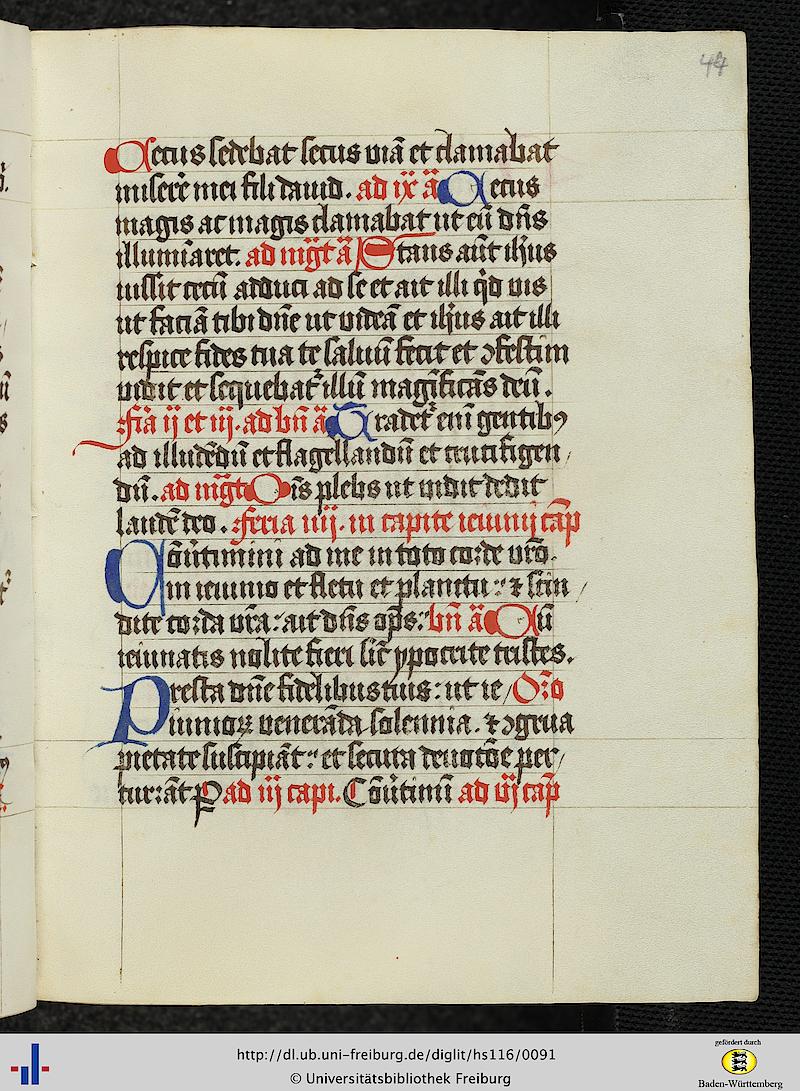 44
Cecus sedebat secus viā et clamabat
miserē mei fili dauid. ad ix ā Cecus
magis ac magis clamabat ut eū dn̄s
illumīaret. ad mḡt ā Stans aūt ih̄us
iussit cecū adduci ad se et ait illi qͥd vis
ut faciā tibi dn̄e ut videā et ih̄us ait illi
respice fides tua te saluū fecit et ꝯfestim
vidit et sequebat᷑ illū magīficās deū.
Fīa ij et iij. ad bn̄ ā Tradet᷑ enī gentibꝰ
ad illudēdū et flagellandū et crucifigen
dū. ad mḡt Oīs plebs ut vidit dedit
laudē deo. Feria iiij. in capite ieiunij cāp
Cōūtimini ad me in toto corde vr̄o.
in ieiunio et fletu et planctu: ⁊ scin
dite corda vr̄a: ait dn̄s op̄s: bn̄ ā Cū
ieiunatis nolite fieri sic̄ ypocrite tristes.
Presta dn̄e fidelibus tuis: ut ie Or̄o
iunioꝝ venerāda solennia. ⁊ ꝯgrua
pietate suscipiāt: et secura deuotōe per
currāt P ad iij capi. Cōūtimī ad vj cāp
http://dl.ub.uni-freiburg.de/diglit/hs116/0091
© Universitätsbibliothek Freiburg
gefördert durch
Baden-Württemberg